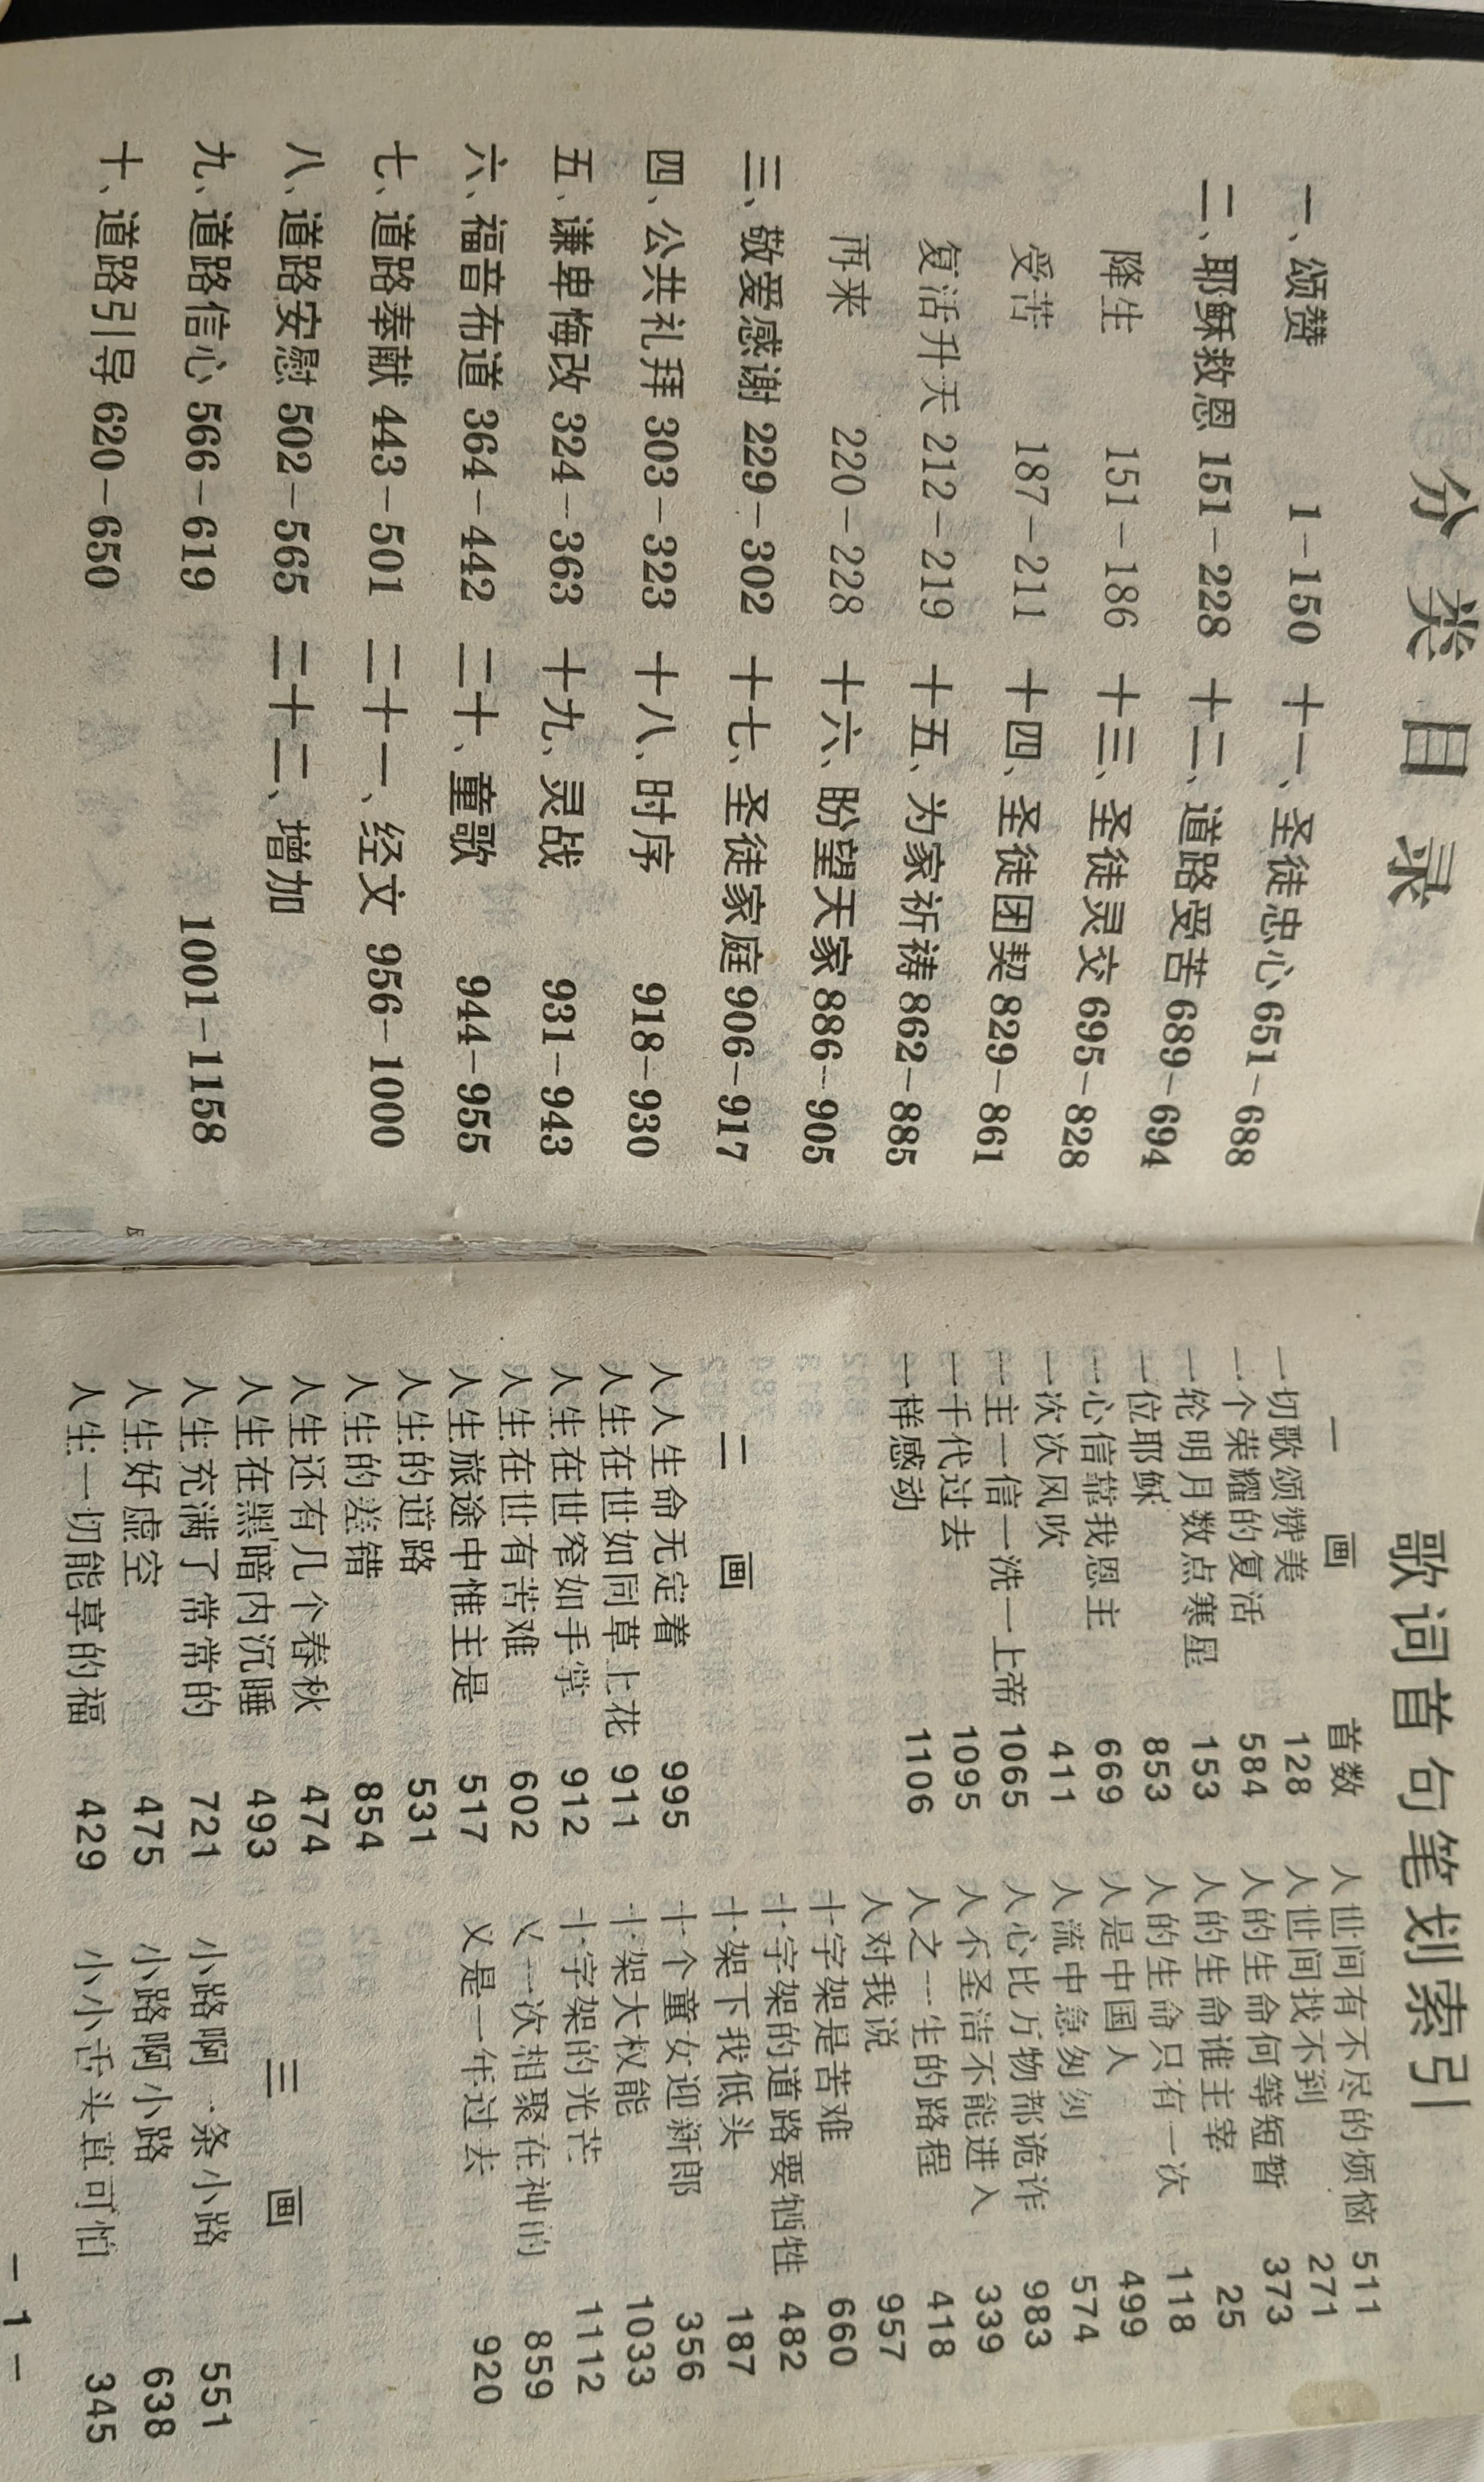 分类目录
一、颂赞 1－150
二、耶稣救恩 151－228
降生 151－186
受苦 187－211
复活升天 212－219
再来 220－228
三、敬爱感谢 229－302
四、公共礼拜 303－323
五、谦卑悔改 324－363
六、福音布道 364－442
七、道路奉献 443－501
八、道路安慰 502－565
九、道路信心 566－619
十、道路引导 620－650
十一、圣徒忠心 651－688
十二、道路受苦 689－694
十三、圣徒灵交 695－828
十四、圣徒团契 829－861
十五、为家祈祷 862－885
十六、盼望天家 886－905
十七、圣徒家庭 906－917
十八、时序 918－930
十九、灵战 931－943
二十、童歌 944－955
二十一、经文 956－1000
二十二、增加
1001－1158
歌词首句笔划索引
一画 首数
一切歌颂赞美 128
一个荣耀的复活 584
一轮明月数点寒星 153
一位耶稣 853
一心信靠我恩主 669
一次次风吹 411
一主一信一洗一上帝 1065
一千代过去 1095
一样感动 1106
二画
人人生命无定着 995
人生在世如同草上花 911
人生在世窄如手掌 912
人生在世有苦难 602
人生旅途中惟主是 517
人生的道路 531
人生的差错 854
人生还有几个春秋 474
人生在黑暗内沉睡 493
人生充满了常常的 721
人生好虚空 475
人生一切能享的福 429
人世间有不尽的烦恼 511
人世间找不到 271
人的生命何等短暂 373
人的生命谁主宰 25
人的生命只有一次 118
人是中国人 499
人流中急匆匆 574
人心比万物都诡诈 983
人不圣洁不能进入 339
人之一生的路程 418
人对我说 957
十字架是苦难 660
十字架的道路要牺牲 482
十架下我低头 187
十个童女迎新郎 356
十架大权能 1033
十字架的光芒 1112
又一次相聚在神的 859
又是一年过去 920
三画
小路啊一条小路 551
小路啊小路 638
小小舌头真可怕 345
－1－